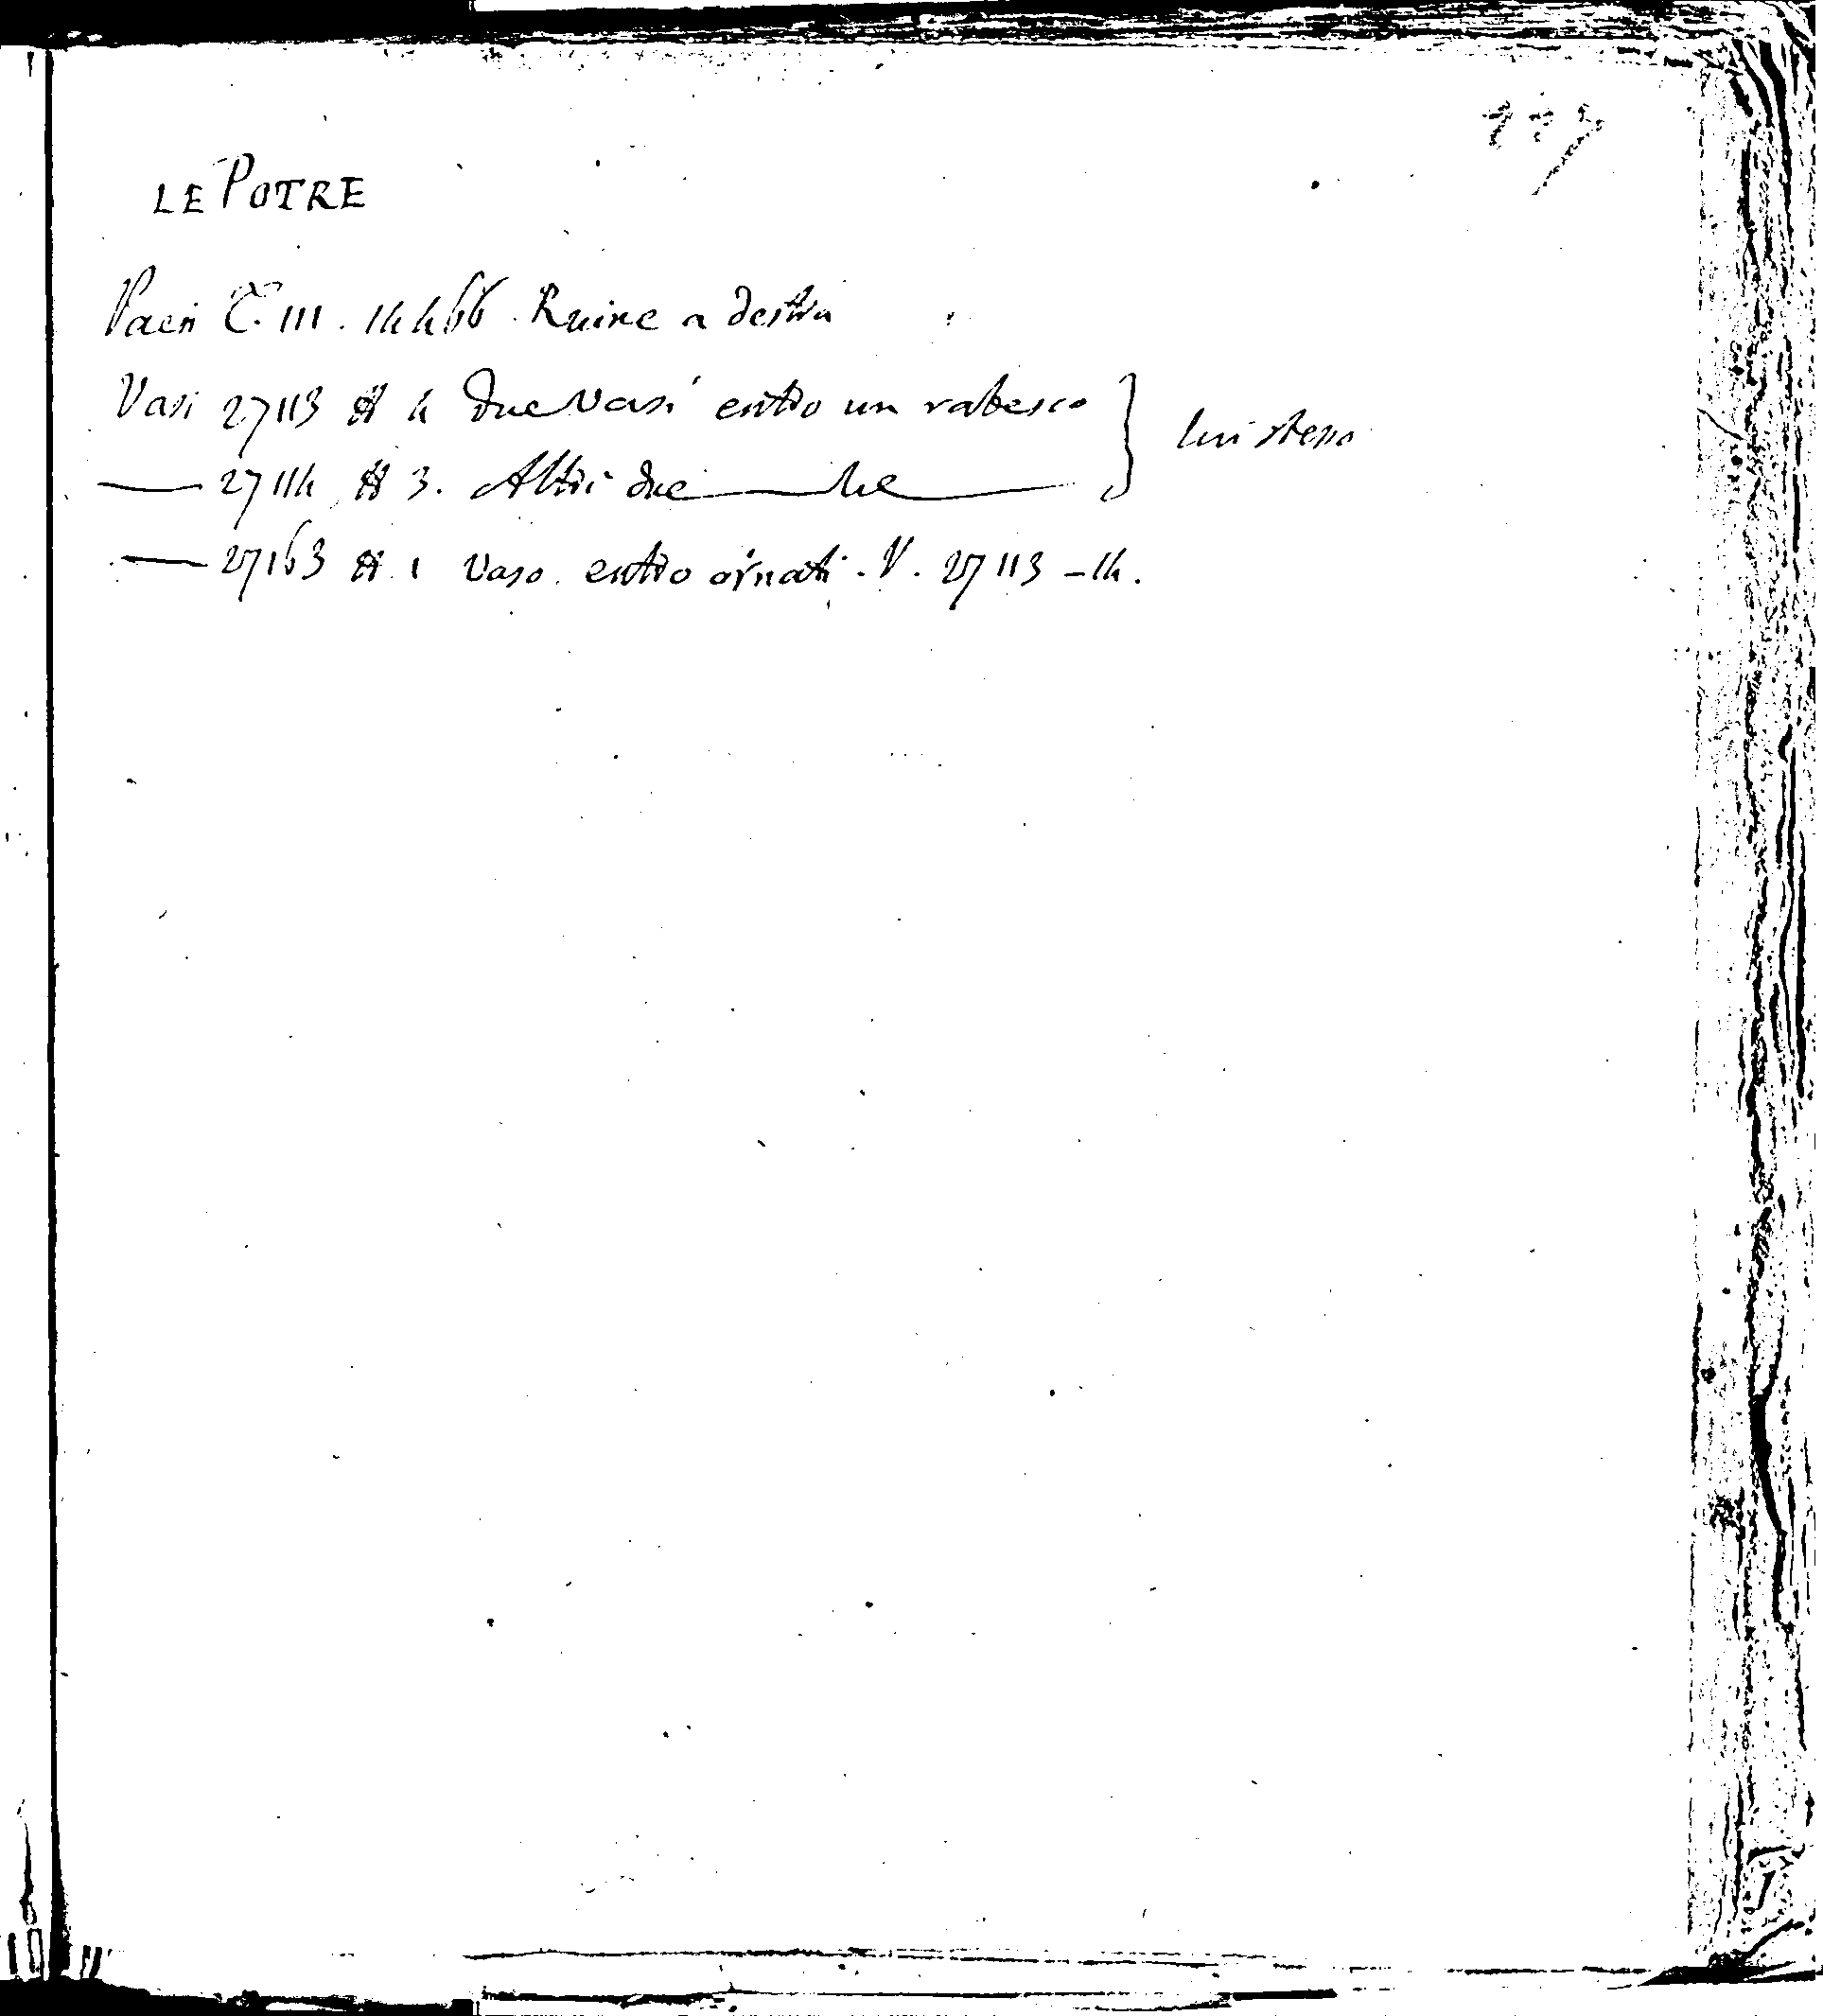 LE POTRE
Paesi T. III. 14466. Ruine a destra
Vasi 27113 # 4 due vasi entro un rabesco
27114 # 3. Altri due
lui stesso
27163 # 1 vaso entro ornati. V. 27113 - 14.